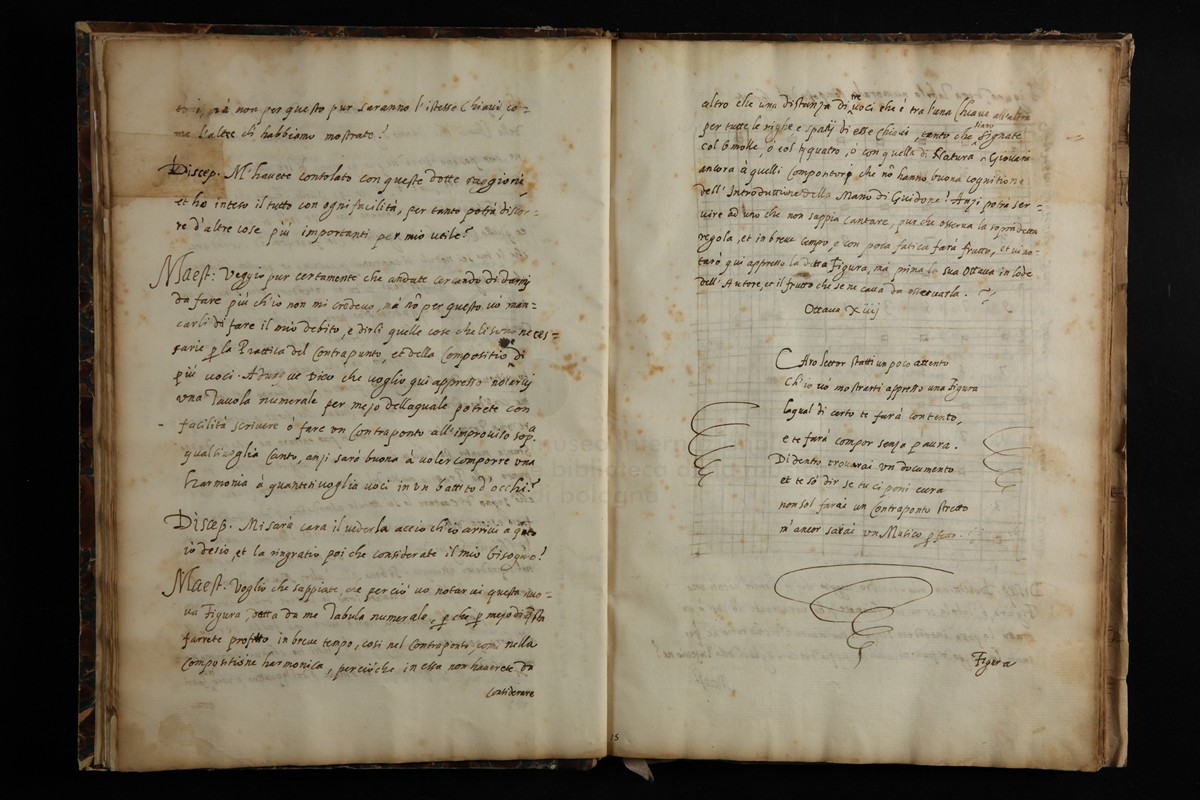 non per questo pur saranno l'istesse Chiavi co=
me l'altre ch'habbiamo mostrato!
Discep. M'havete consolato con queste dotte raggioni
et ho inteso il tutto con ogni facilità, per tanto potrà discor=
re d'altre cose più importanti per mio utile!
Maest: Veggio pur certamente che andate cercando di darmi
da fare più ch'io non mi credevo, mà nõ per questo vò man=
carli di fare il mio debito, e dirli quelle cose che li sono neces=
sarie p la Prattica del Contrapunto, et della Compositione di
più voci. Adunque dico che voglio qui appresso notarvi
una Tavola numerale per mejo della quale potrete con
facilità scrivere ò fare un Contraponto all'improviso sopa
qualsivoglia Canto, anzi sarà buona à voler comporre una
harmonia à quante si voglia voci in un battito d'occhi!
Discep. Mi sarà cara il vederla acciò ch'io arrivi à qto
io desio, et la ringratio poi che considerate il mio bisogno!
Maest. Voglio che sappiate che perciò vo notarvi questa nuo=
va Figura, detta da me Tabula numerale, p che p mejo di qsta
farrete profitto in breve tempo, cosi nel Contraponto come nella
Compositione harmonica, percioche in essa non haverete da
Considerare
altro che una distanza di tre voci che è tra l'una Chiave all'altra
per tutte le righe e spatij di esse Chiavi, tanto che siano signate
col b molle, ò col ♮ quatro, ò con quella di Natura, Giovarà
ancora à quelli Compontori che nõ hanno buona cognitione
dell'Introduttione della Mano di Guidone! Anzi potrà ser=
vire ad uno che non sappia Cantare, pur che osserva la sopradetta
regola, et in breve tempo, e con poca fatica farà frutto, et vi no=
tarò qui appresso la detta Figura, ma prima la sua Ottava in lode
dell'Autore, et il frutto che se ne cava da osservarla.
Ottava Xiiij
CAro lector statti un poco attento
Ch'io vò mostrarti appresso una Figura
laqual di certo te farà contento,
e te farà compor senza paura.
Di dentro trovarai un documento
et te sò dir se tu ci poni cura
non sol farai un Contraponto stretto
m'ancor sarai un Musico p
Figura
15